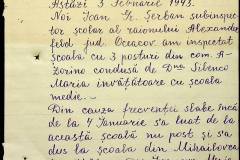 Astăzi 3 Februarie 1943.
Noi Ioan Gh. Șerban subinspec
tor școlar al raionului Alexandru
feld jud. Oceacov am inspectat
școala cu 3 posturi din com. A
Zorino condusă de Dna Silenco
Maria învățătoare cu școala
medie. -
Din cauza frecvenței slabe încă
de la 4 Ianuarie s'a luat de la
această școală un post și s'a
dus la școala din Mihailovca